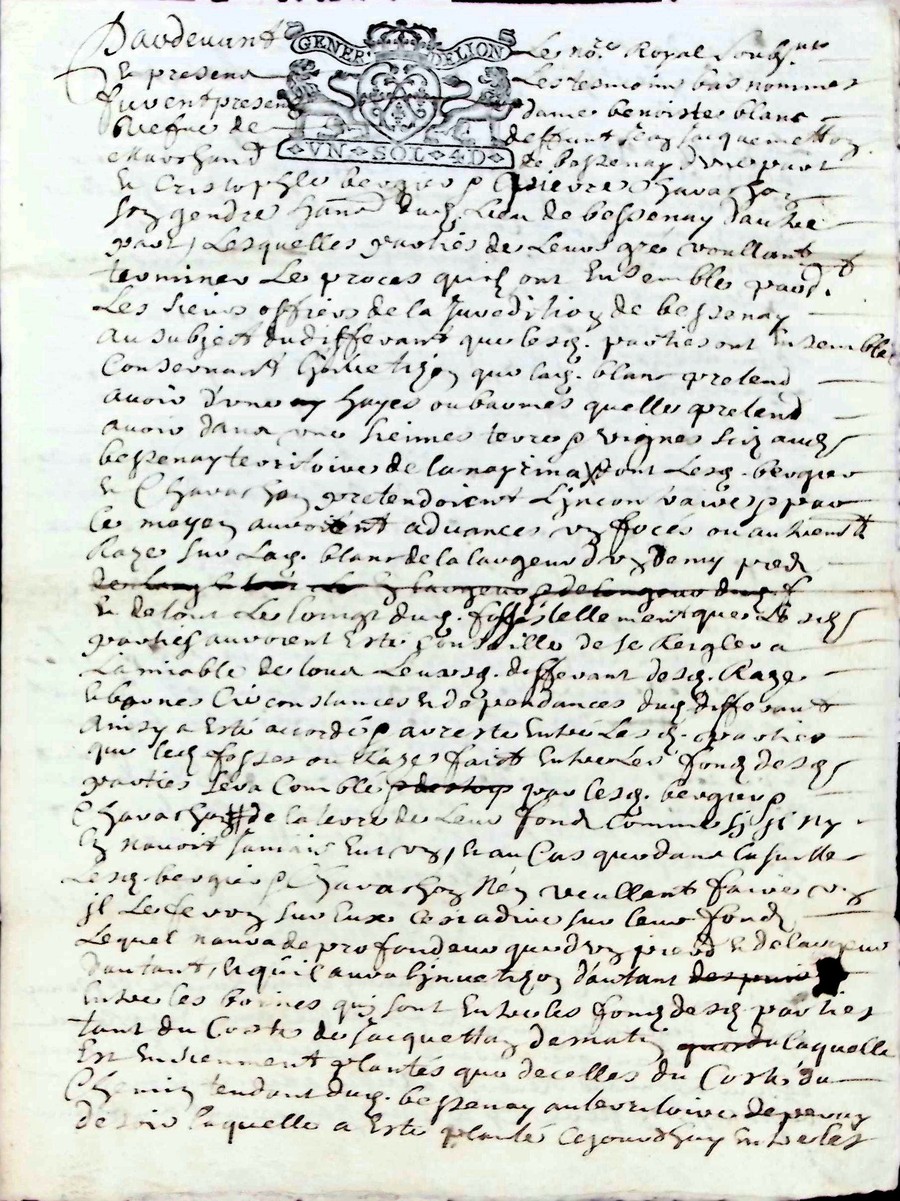 GENER. DELION
VN SOL 4D
Pardevant Le no.re Royal soub.né
Et presens Les tesmoins bas nommes
furent presens dame benoiste blanc
vefue de deffunt
Marchand de bessenay d'une part
Et Cristophle bergier & pierre Chavachon
son gendre du Lieu de bessenay dautre
part, Lesquelles parties de Leurs gré voullant
terminer Le proces quilz ont Ensembles pard.t
Les sieurs offiers de la Juredition de bessenay
Au subject du differant que lesd. parties ont Ensembles
Consernant que lad. blanc pretend
avoir d'une hayes ou baumes quelle pretend
avoir dans une siennes terre & vignes aud.
bessenay territoire de dont Lesd. bergier
Et Chavachon pretendoient &
Le moyen auroient advances un foces ou autrement
Razes sur Lad. blanc de la largeur d'un Demy pied
Et de tout Le Long dud. tellement que Lesd.
parties auroient Esté Conseille de se Reigler a
Lamiable de tous Leursd. differant desd. Raze
Et bornes Circonstances Et dependances dud. differant
Ainsy a Esté accordé & arresté Entre Lesd. parties
que led. fosses ou Razes faict Entre Les fond desd.
parties sera Comble par lesd. bergier &
Chavachon de la terre de Leur fond Comme sy il ny
En navoit Jamais Eut un, Et au Cas que dans la suitte
Lesd. bergier & Chavachon veullent faire un
Il Le feron sur Eux Cest a dire sur leur fond
Lequel naura de profondeur que d'un pied Et de largeur
dautant, Et quil aura dautant
Entre les bornes qui sont Entre les fond desd. parties
tant du Costé de de matin laquelle
Est Entiennement plantés que decelles du Costé du
Chemin tendant dud. bessenay au territoire de
de soir laquelle a Esté planté Cejourdhuy Entre les